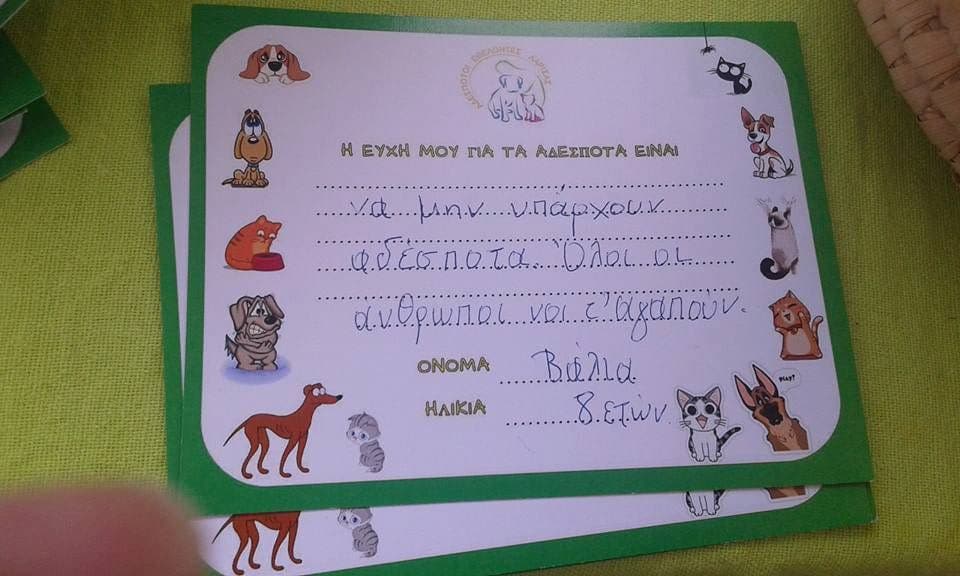 ΑΔΕΣΠΟΤΟΙ ΕΘΕΛΟΝΤΕΣ
Η ΕΥΧΗ ΜΟΥ ΓΙΑ ΤΑ ΑΔΕΣΠΟΤΑ ΕΙΝΑΙ
να μην υπάρχουν
αδέσποτα. Όλοι οι
ανθρωποι να τ'αγαπούν.
ΟΝΟΜΑ Βάλια
ΗΛΙΚΙΑ 8 ετών
PLAY?